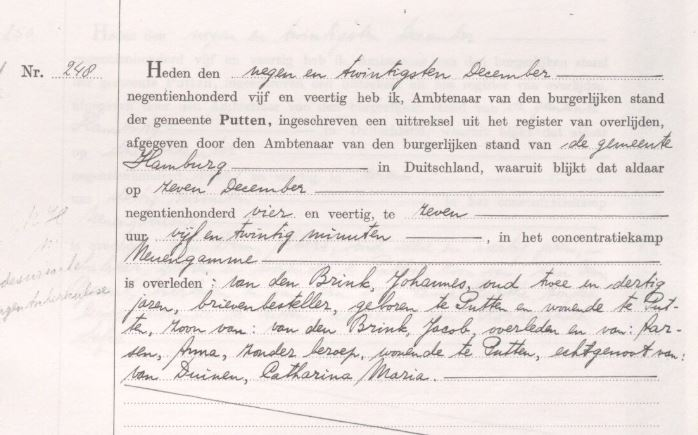 Nr. 248 Heden den negen en twintigsten December
negentienhonderd vijf en veertig heb ik, Ambtenaar van den burgerlijken stand
der gemeente Putten, ingeschreven een uittreksel uit het register van overlijden,
afgegeven door den Ambtenaar van den burgerlijken stand van de gemeente
Hamburg in Duitschland, waaruit blijkt dat aldaar
op zeven December
negentienhonderd vier en veertig, te zeven
uur vijf en twintig minuten, in het concentratiekamp
Neuengamme
is overleden : van den Brink, Johannes, oud twee en dertig
jaren, brievenbesteller, geboren te Putten en wonende te Put-
ten, zoon van: van den Brink, Jacob, overleden en van: Kar-
sen, Anna, zonder beroep, wonende te Putten, echtgenoot van:
van Duinen, Catharina Maria.